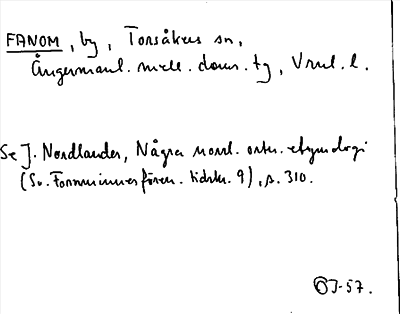 FANOM, by, Torsåkers sn,
Ångermanl. mell. doms. tg, Vnrl. l.
Se J. Nordlander, Några norrl. ortn. etymologi
(Sv. Fornminnesfören. tidskr. 9), s. 310.
ÖJ-57.